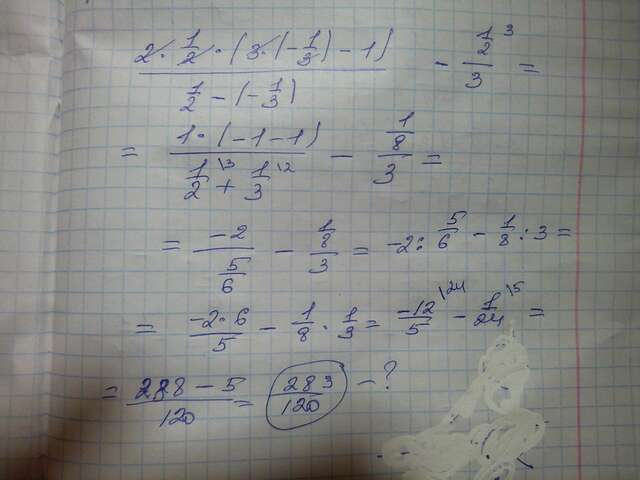 (2 · 1/2 · (3 · (-1/3) - 1)) / (1/2 - (-1/3)) - (1/2^3) / 3 =
= (1 · (-1 - 1)) / (1/2 \3 + 1/3 \2) - (1/8) / 3 =
= -2 / (5/6) - (1/8) / 3 = -2 : 5/6 - 1/8 : 3 =
= (-2 · 6) / 5 - 1/8 · 1/3 = -12/5 \24 - 1/24 \5 =
= (288 - 5) / 120 = 283/120 - ?